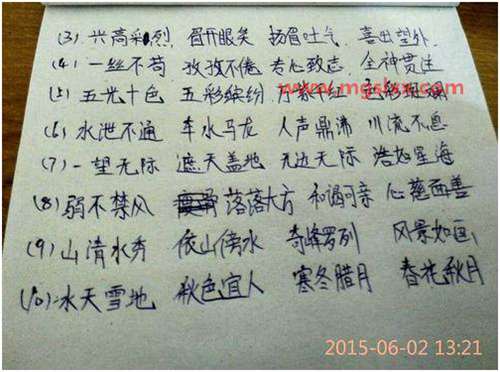 (3) 兴高彩烈 眉开眼笑 扬眉吐气 喜出望外
(4) 一丝不苟 孜孜不倦 专心致志 全神贯注
(5) 五光十色 五彩缤纷
(6) 水泄不通 车水马龙 人声鼎沸 川流不息
(7) 一望无际 遮天盖地 无边无际 浩如星海
(8) 弱不禁风 落落大方 和谒可亲 心慈面善
(9) 山清水秀 依山傍水 奇峰罗列 风景如画
(10) 水天雪地 秋色宜人 寒冬腊月 春花秋月
2015-06-02 13:21